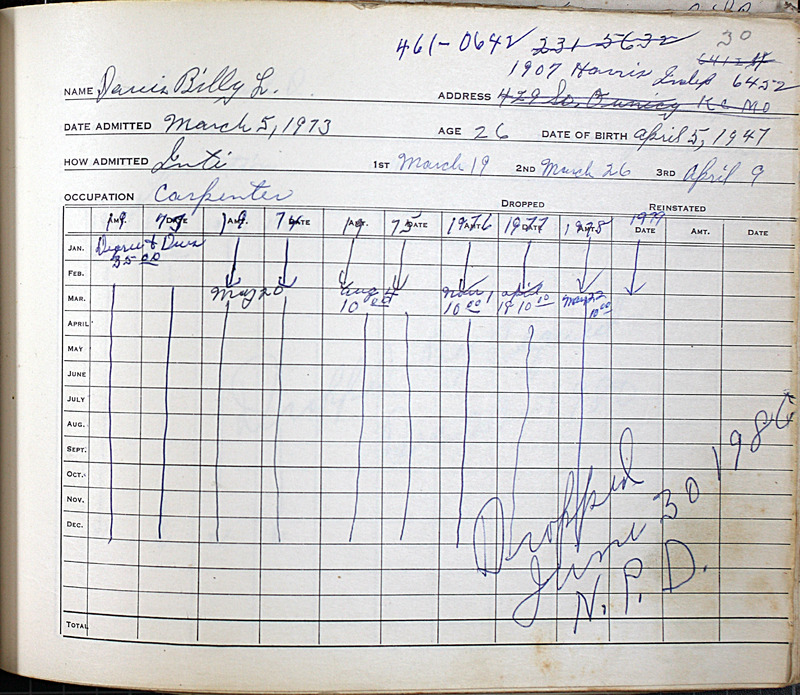 30
461-0642 231-5632
1907 Harris Indep 6452
NAME Davis Billy L. ADDRESS 429 So. KC MO
DATE ADMITTED March 5, 1973 AGE 26 DATE OF BIRTH April 5, 1947
HOW ADMITTED Inti 1ST March 19 2ND March 26 3RD April 9
OCCUPATION Carpenter
DROPPED REINSTATED
19 73 19 74 19 75 1976 1977 1978 1979
AMT. DATE AMT. DATE AMT. DATE AMT. DATE AMT. DATE AMT. DATE
JAN. Degree & Dues
35.00
FEB.
MAR. May 20 Aug 4 Nov 1 April May 22
10 00 10 00 18 10 00 10 00
APRIL
MAY
JUNE
JULY
AUG.
SEPT.
OCT.
NOV.
DEC.
Dropped
June 30 198
N.P.D.
TOTAL